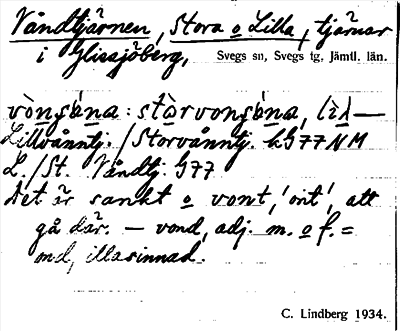 Våndtjärnen, Stora o Lilla, tjärnar
i Glissjöberg, Svegs sn, Svegs tg, Jämtl. län.
Lillvånntj. / Storvånntj. kG77NM
L./St. Våndtj. G77
Det är sankt o vont, 'ont', att
gå där. – vond, adj. m. o f. =
md, illasinnad.
C. Lindberg 1934.